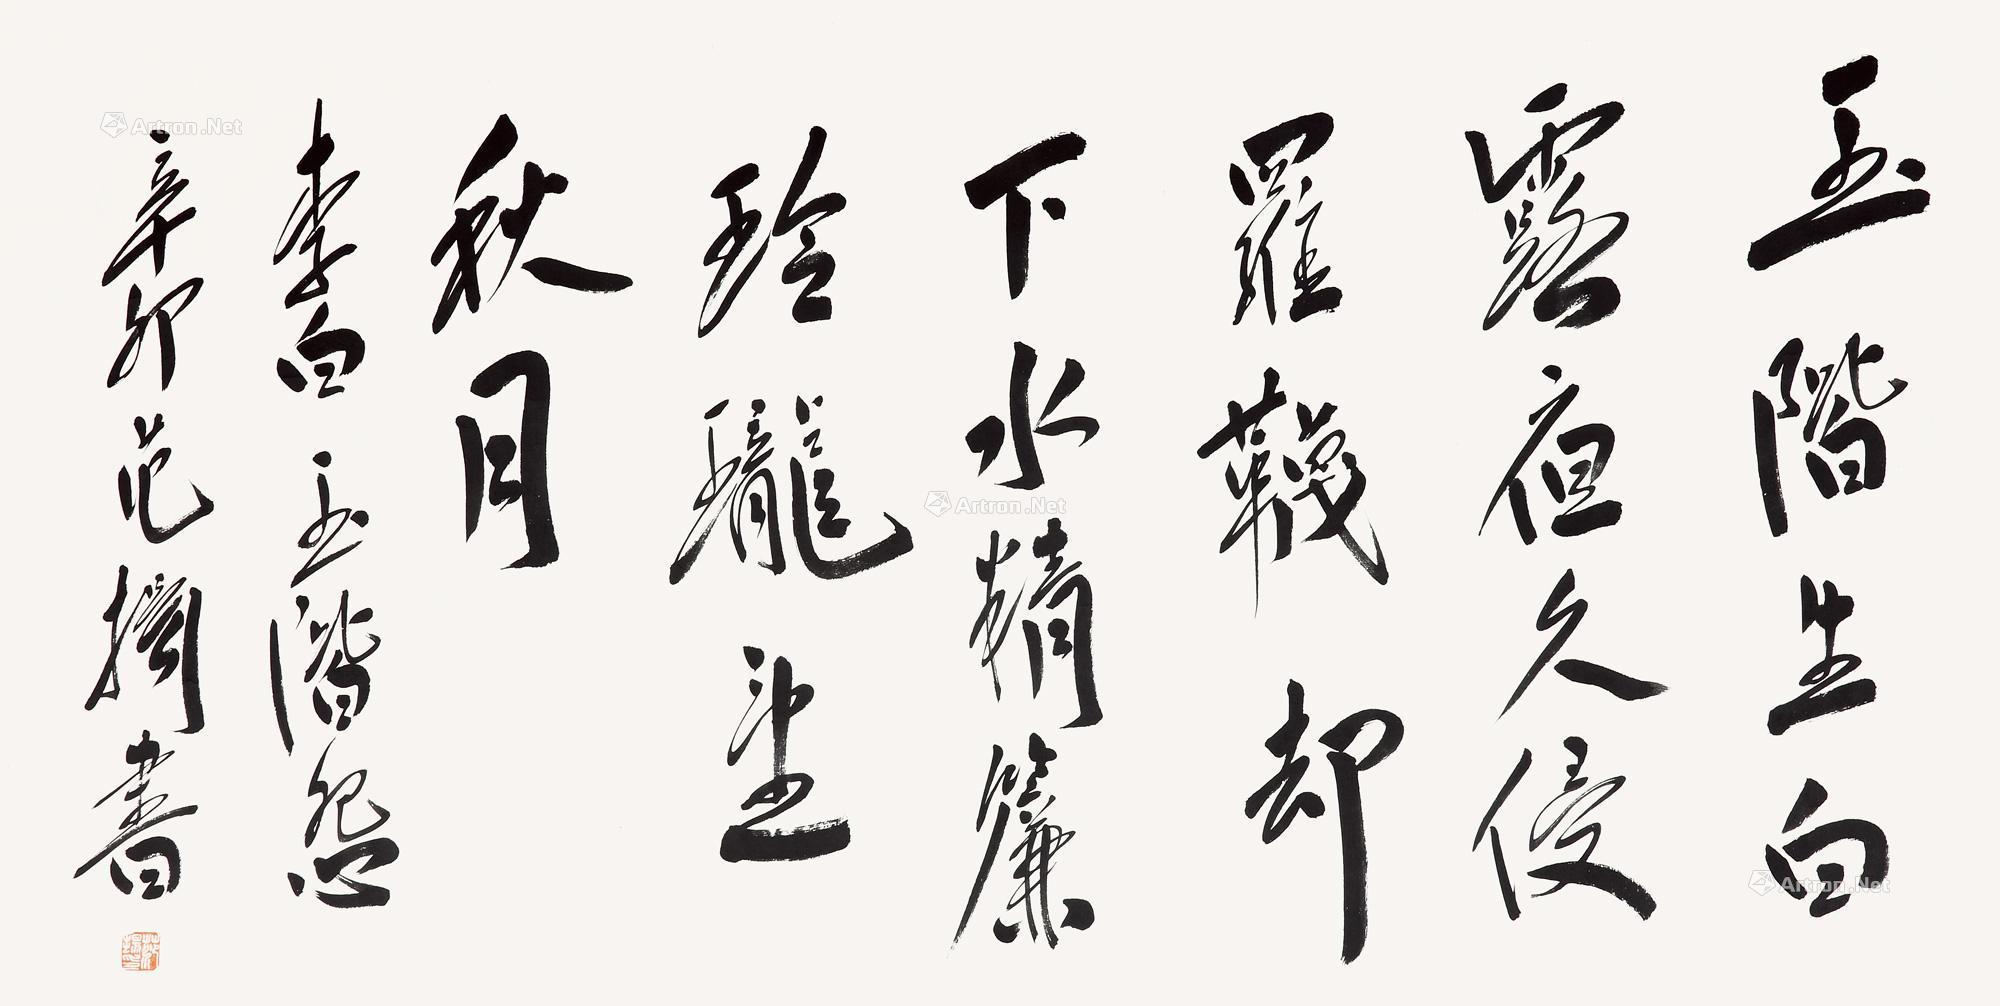 玉階生白
露夜久侵
羅韈却
下水精簾
玲瓏望
秋月
李白玉階怨
辛卯范擕書
Artron.Net
Artron.Net
Artron.Net